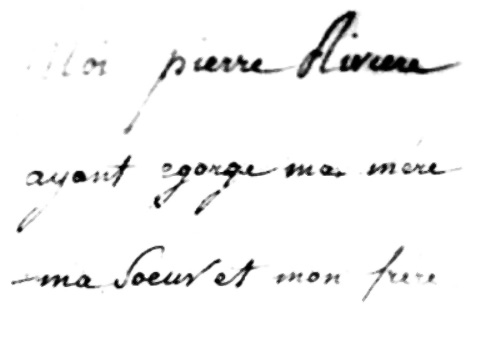 Moi pierre Riviere
ayant egorgé ma mère
ma soeur et mon frere